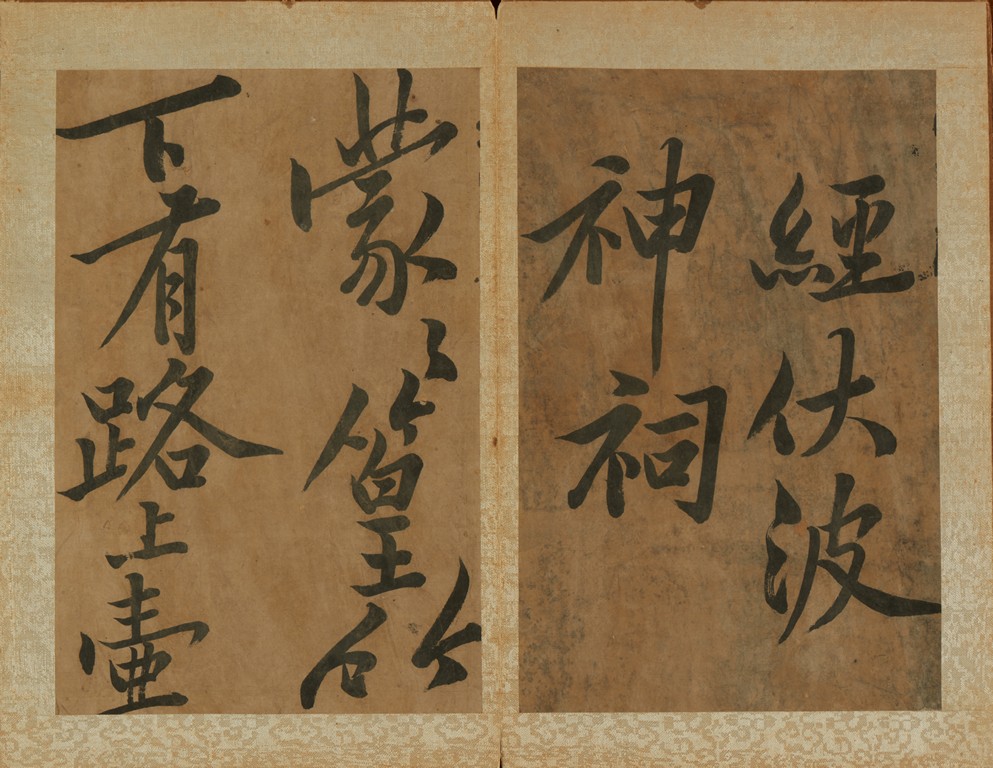 經伏波
神祠
蒙々篁竹
下有路上壺